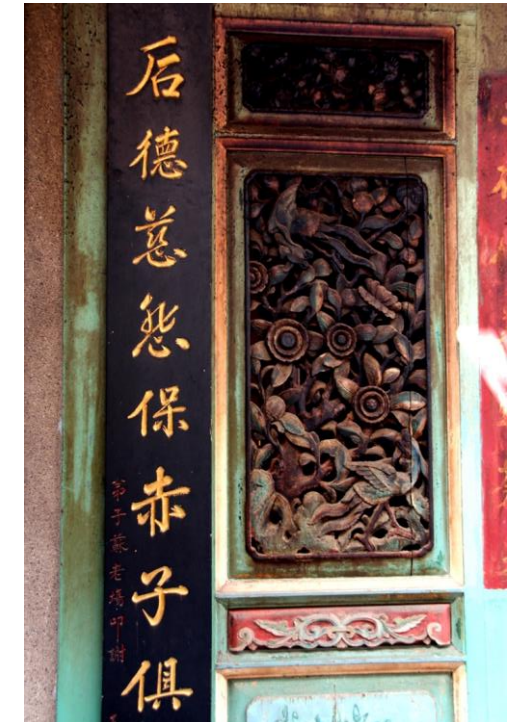 后德慈悲保赤子俱
弟子蘇老得叩謝